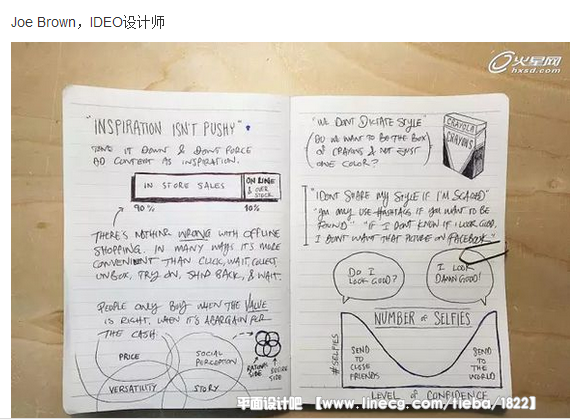 Joe Brown，IDEO设计师
火星网
hxsd.com
"INSPIRATION ISN'T PUSHY"
TONE IT DOWN & DON'T FORCE
AD CONTENT AS INSPIRATION.
IN STORE SALES
ONLINE
& OVER
STOCK
90%
10%
THERE'S NOTHING WRONG WITH OFFLINE
SHOPPING. IN MANY WAYS IT'S MORE
CONVENIENT THAN CLICK, WAIT, COLLECT
UNBOX, TRY ON, SHIP BACK, & WAIT.
PEOPLE ONLY BUY WHEN THE VALUE
IS RIGHT, WHEN IT'S A BARGAIN FOR
THE CASH.
PRICE
SOCIAL
PERCEPTION
VERSATILITY
STORY
RATIONAL
SIDE
DESIRE
SIDE
"WE DON'T DICTATE STYLE"
(DO WE WANT TO BE THE BOX
OF CRAYONS & NOT JUST
ONE COLOR?
CRAYOLA
CRAYONS
"I DON'T SHARE MY STYLE IF I'M SCARED"
"YOU ONLY USE HASHTAGS IF YOU WANT TO BE
FOUND" "IF I DON'T KNOW IF I LOOK GOOD,
I DON'T WANT THAT PICTURE ON FACEBOOK"
DO I
LOOK GOOD?
I LOOK
DAMN GOOD!
NUMBER of SELFIES
#SELFIES
SEND
TO
CLOSE
FRIENDS
SEND
TO
THE
WORLD
LEVEL of CONFIDENCE
平面设计吧 【www.linecg.com/tieba/1822】